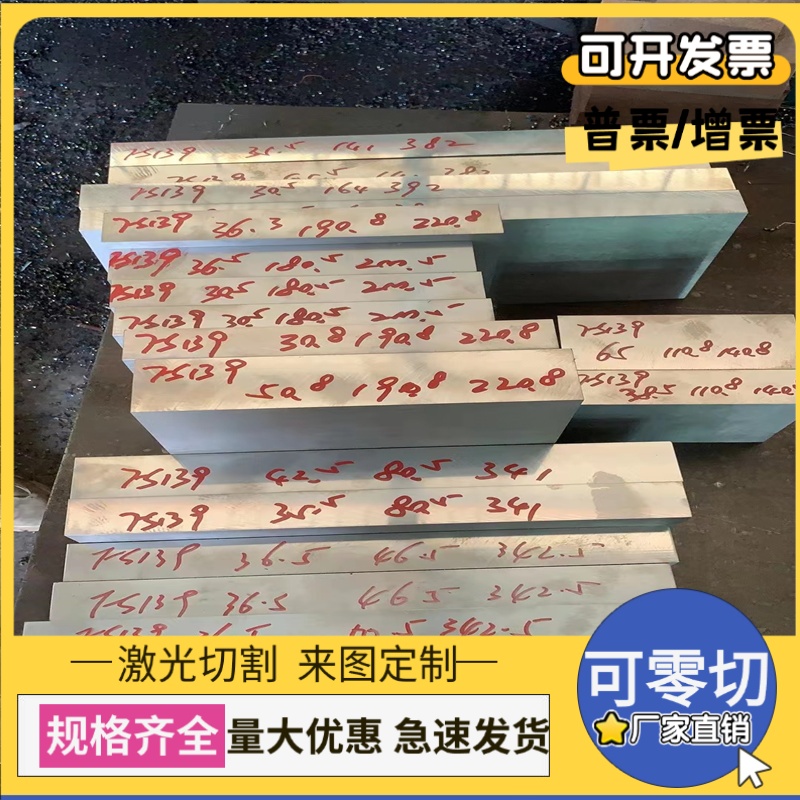 可开发票
普票/增票
7S139 35.5 141 382
7S139 30.5 164 392
7S139 36.3 190.8 220.8
7S139 36.5 180.5 200.5
7S139 30.5 180.5 200.5
7S139 30.5 180.5 200.5
7S139 30.8 190.8 220.8
7S139 50.8 190.8 220.8
7S139
65 110.8 140.8
7S139
38.5 110.8 140.8
7S139 42.5 80.5 341
7S139 35.5 80.5 341
7S139 36.5 46.5 342.5
7S139 36.5 46.5 342.5
7S139 342.5
激光切割 来图定制
可零切
厂家直销
规格齐全 量大优惠 急速发货